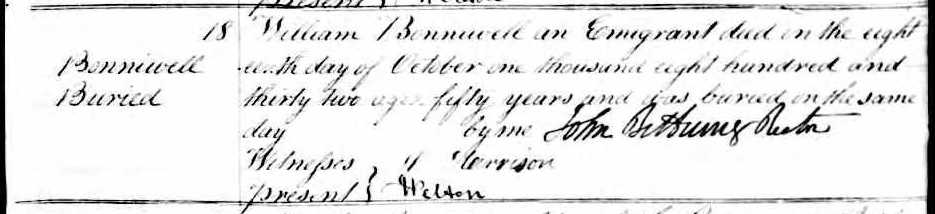 18 William Bonniwell an Emigrant died on the eight
Bonniwell eenth day of October one thousand eight hundred and
Buried thirty two aged fifty years and was buried on the same
day by me John Bethune Rector
Witnesses } Morrison
present } Welton